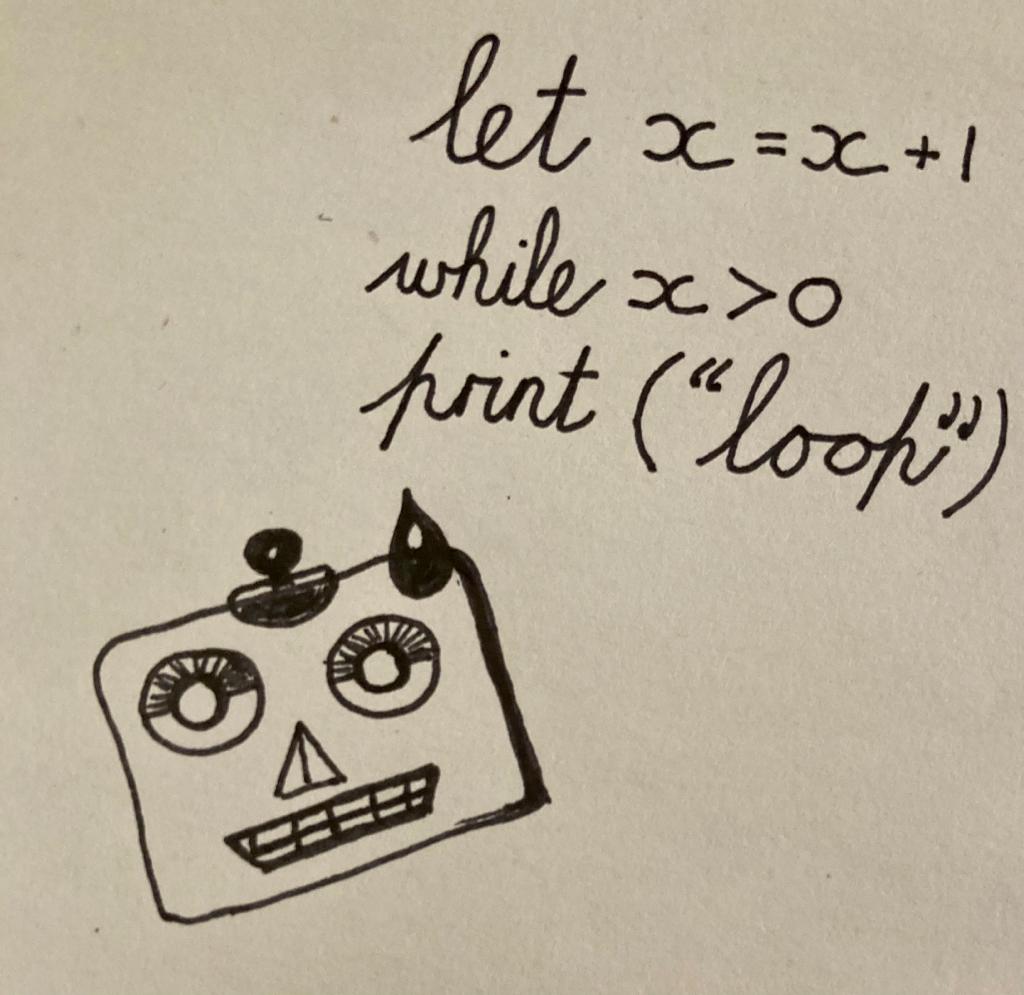 let x = x + 1
while x > 0
print (“loop”)